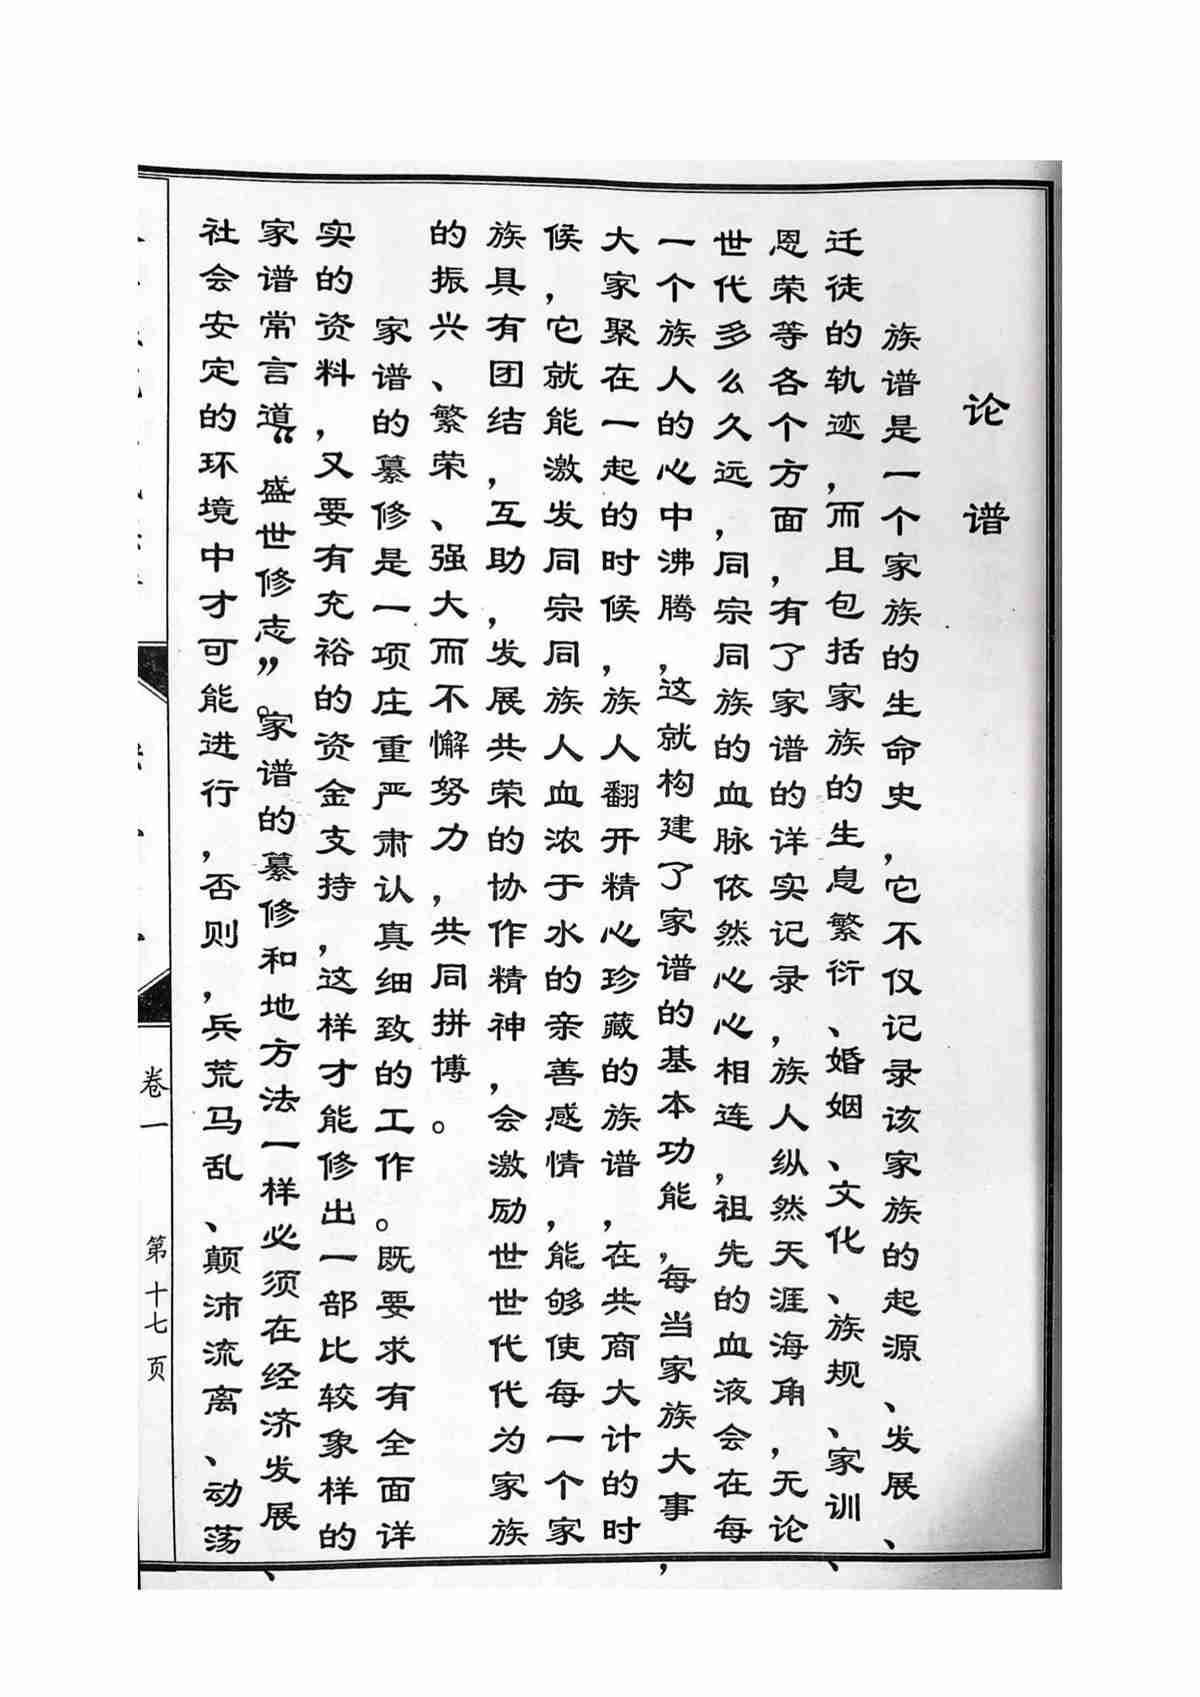 论谱
族谱是一个家族的生命史，它不仅记录该家族的起源、发展、
迁徒的轨迹，而且包括家族的生息繁衍、婚姻、文化、族规、家训、
恩荣等各个方面，有了家谱的详实记录，族人纵然天涯海角，无论
世代多么久远，同宗同族的血脉依然心心相连，祖先的血液会在每
一个族人的心中沸腾，这就构建了家谱的基本功能，每当家族大事，
大家聚在一起的时候，族人翻开精心珍藏的族谱，在共商大计的时
候，它就能激发同宗同族人血浓于水的亲善感情，能够使每一个家
族具有团结，互助，发展共荣的协作精神，会激励世世代代为家族
的振兴、繁荣、强大而不懈努力，共同拼博。
家谱的纂修是一项庄重严肃认真细致的工作。既要求有全面详
实的资料，又要有充裕的资金支持，这样才能修出一部比较象样的
家谱常言道“盛世修志”。家谱的纂修和地方法一样必须在经济发展、
社会安定的环境中才可能进行，否则，兵荒马乱、颠沛流离、动荡
卷一
第十七页